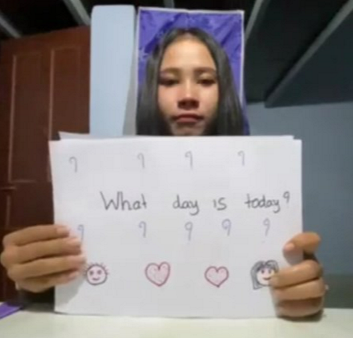 ? ? ? ?
What day is today?
? ? ? ? ?